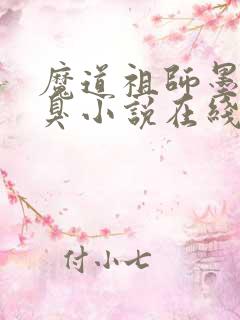 魔道祖師墨
臭小說在綫
付小七